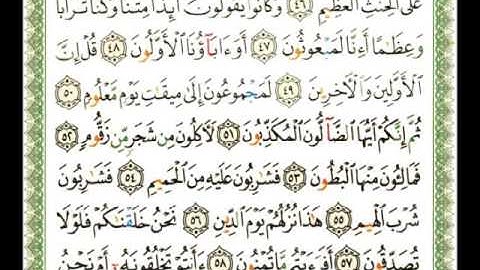 عَلَى ٱلْحِنثِ ٱلْعَظِيمِ ٤٦ وَكَانُوا۟ يَقُولُونَ أَئِذَا مِتْنَا وَكُنَّا تُرَابًا
وَعِظَٰمًا أَءِنَّا لَمَبْعُوثُونَ ٤٧ أَوَءَابَآؤُنَا ٱلْأَوَّلُونَ ٤٨ قُلْ إِنَّ
ٱلْأَوَّلِينَ وَٱلْءَاخِرِينَ ٤٩ لَمَجْمُوعُونَ إِلَىٰ مِيقَٰتِ يَوْمٍ مَّعْلُومٍ ٥٠
ثُمَّ إِنَّكُمْ أَيُّهَا ٱلضَّآلُّونَ ٱلْمُكَذِّبُونَ ٥١ لَءَاكِلُونَ مِن شَجَرٍ مِّن زَقُّومٍ ٥٢
فَمَالِـُٔونَ مِنْهَا ٱلْبُطُونَ ٥٣ فَشَٰرِبُونَ عَلَيْهِ مِنَ ٱلْحَمِيمِ ٥٤ فَشَٰرِبُونَ
شُرْبَ ٱلْهِيمِ ٥٥ هَٰذَا نُزُلُهُمْ يَوْمَ ٱلدِّينِ ٥٦ نَحْنُ خَلَقْنَٰكُمْ فَلَوْلَا
تُصَدِّقُونَ ٥٧ أَفَرَءَيْتُم مَّا تُمْنُونَ ٥٨ ءَأَنتُمْ تَخْلُقُونَهُۥٓ أَمْ نَحْنُ